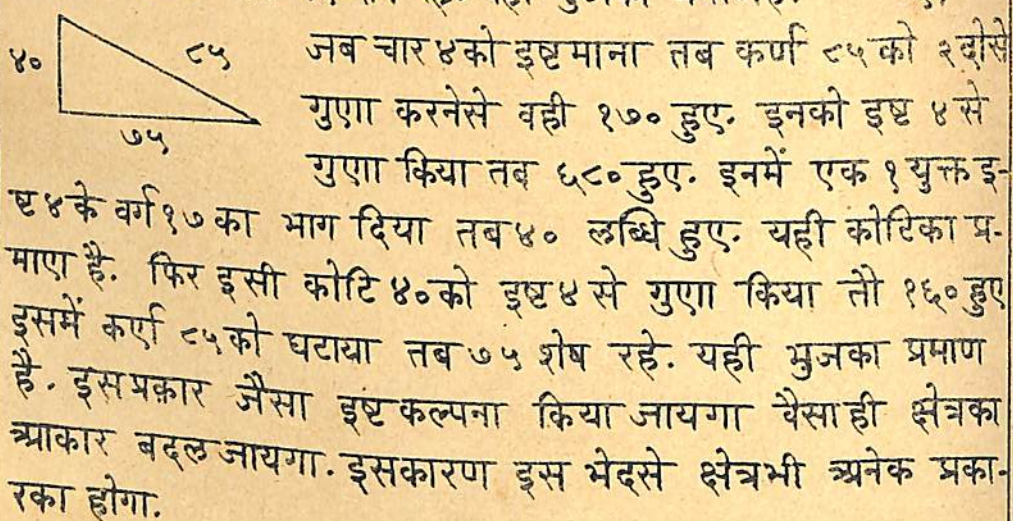 ४०
८५
७५
जब चार ४ को इष्ट माना तब कर्ण ८५ को २ दोसे
गुणा करनेसे वही १७० हुए. इनको इष्ट ४ से
गुणा किया तब ६८० हुए. इनमें एक १ युक्त इ-
ष्ट ४ के वर्ग १७ का भाग दिया तब ४० लब्धि हुए. यही कोटिका प्र-
माण है. फिर इसी कोटि ४० को इष्ट ४ से गुणा किया तौ १६० हुए
इसमें कर्ण ८५ को घटाया तब ७५ शेष रहे. यही भुजका प्रमाण
है. इसप्रकार जैसा इष्ट कल्पना किया जायगा वैसाही क्षेत्रका
आकार बदल जायगा. इसकारण इस भेदसे क्षेत्रभी अनेक प्रका-
रका होगा.